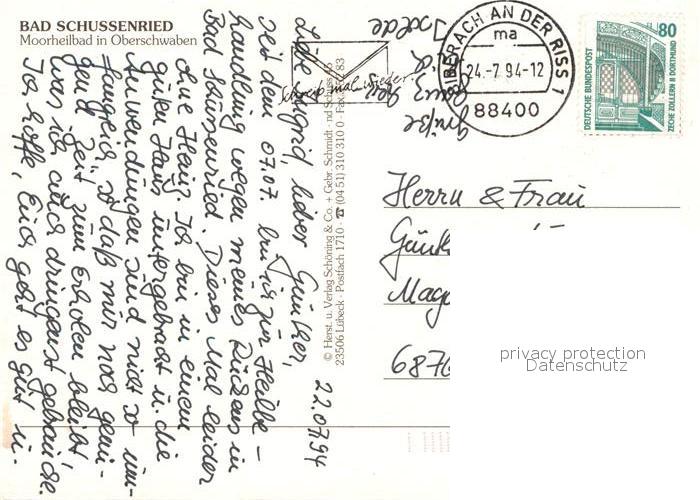 BAD SCHUSSENRIED
Moorheilbad in Oberschwaben
22.07.94
Liebe Sigrid, lieber Günther,
seit dem 07.07. bin ich zur Heilbe-
handlung wegen meines Rückens in
Bad Schussenried. Dieses Mal leider
ohne Heinz. Ich bin in einem
guten Haus untergebracht u. die
Anwendungen sind nicht so um-
fangreich, so daß mir noch genü-
gend Zeit zum Erholen bleibt,
was ich auch dringend gebrauche.
Ich hoffe, Euch geht es gut u.
Grüße
Isolde
© Herst. u. Verlag Schöning & Co. + Gebr. Schmidt
23506 Lübeck · Postfach 1710 · ☎ (04 51) 310 310 0
Schreib mal wieder
BIBERACH AN DER RISS 1
ma
24.-7.94-12
88400
80
DEUTSCHE BUNDESPOST
ZECHE ZOLLERN II DORTMUND
Herrn & Frau
Günt
Mag
687
privacy protection
Datenschutz